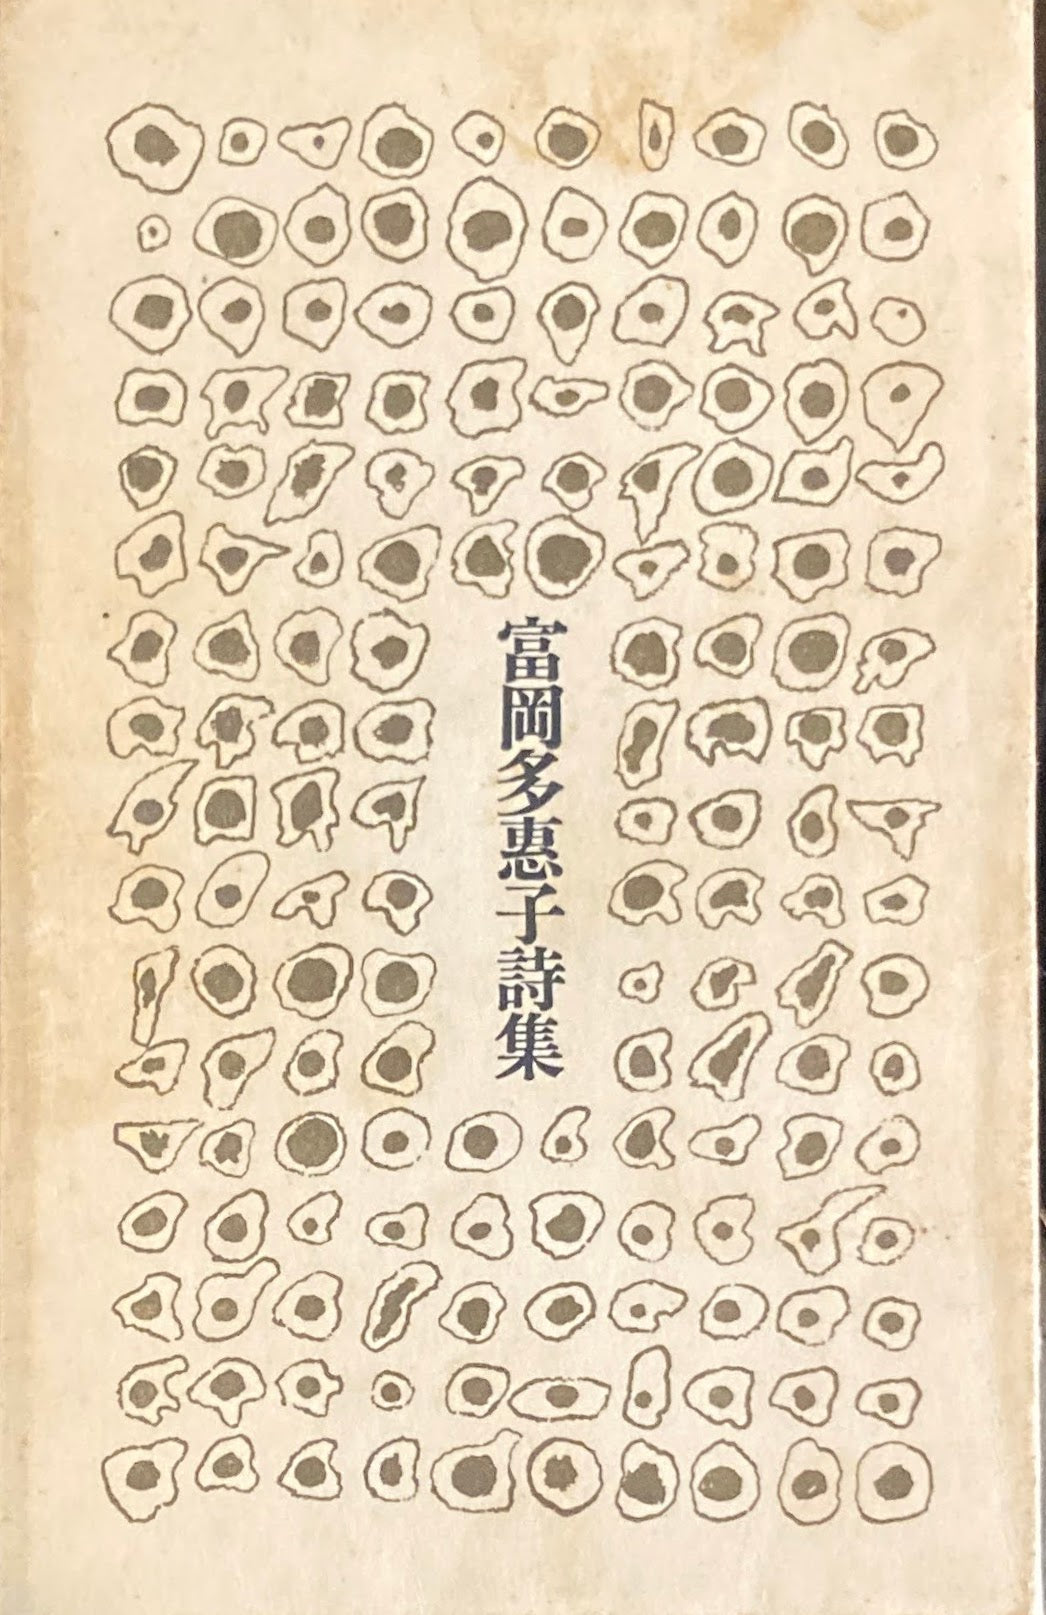 富岡多惠子詩集